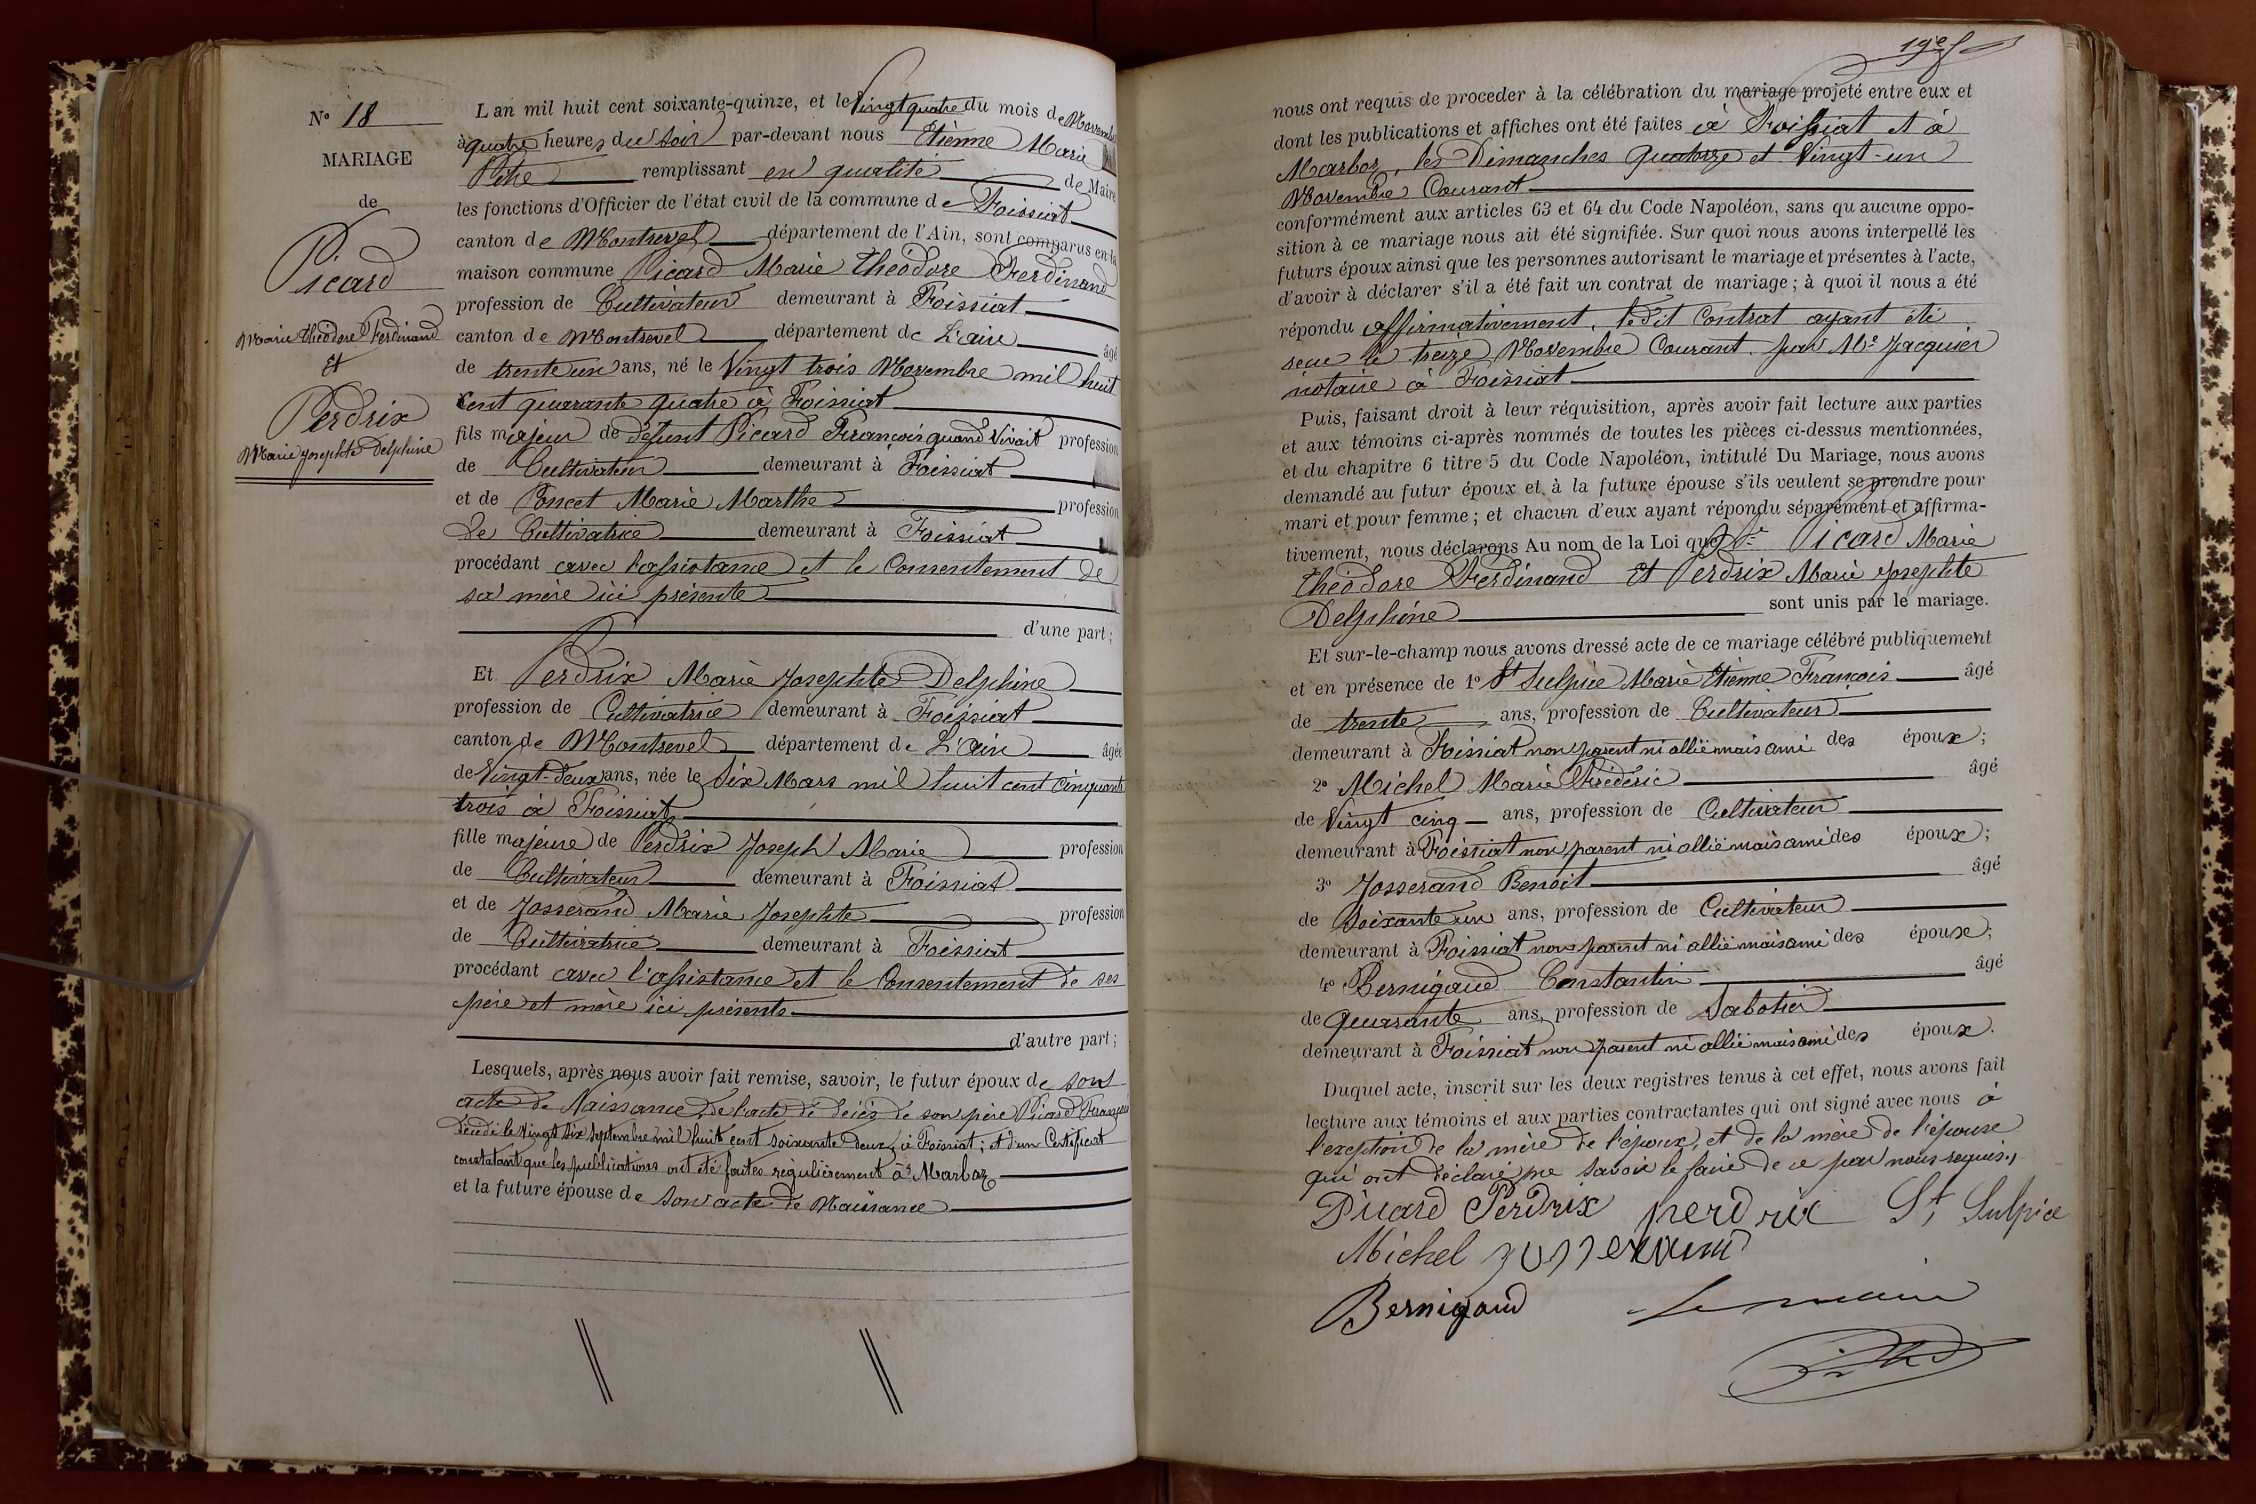 N° 18
MARIAGE
de
Picard
Marie Théodore Ferdinand
Et
Perdrix
Marie Josephte Delphine
L'an mil huit cent soixante-quinze, et le Vingt quatre du mois de Novembre
à quatre heures du soir par-devant nous Etienne Marie
remplissant en qualité de Maire
les fonctions d'Officier de l'état civil de la commune de Foissiat
canton de Montrevel département de l'Ain, sont comparus en la
maison commune Picard Marie Théodore Ferdinand
profession de Cultivateur demeurant à Foissiat
canton de Montrevel département de L'ain âgé
de trente un ans, né le Vingt trois Novembre mil huit
cent quarante quatre à Foissiat
fils majeur de défunt Picard François quand vivait profession
de Cultivateur demeurant à Foissiat
et de Poncet Marie Marthe profession
de Cultivatrice demeurant à Foissiat
procédant avec l'assistance et le Consentement de
sa mère ici présente
d'une part ;
Et Perdrix Marie Josephte Delphine
profession de Cultivatrice demeurant à Foissiat
canton de Montrevel département de L'ain âgée
de Vingt-deux ans, née le Six Mars mil huit cent cinquante
trois à Foissiat
fille majeure de Perdrix Joseph Marie profession
de Cultivateur demeurant à Foissiat
et de Josserand Marie Josephte profession
de Cultivatrice demeurant à Foissiat
procédant avec l'assistance et le Consentement de ses
père et mère ici présents
d'autre part ;
Lesquels, après nous avoir fait remise, savoir, le futur époux de son
acte de Naissance, de l'acte de décès de son père Picard François
décédé le Vingt Six Septembre mil huit cent soixante deux, à Foissiat ; et d'un Certificat
constatant que les publications ont été faites régulièrement à Marboz
et la future épouse de son acte de Naissance
19e f
nous ont requis de proceder à la célébration du mariage projeté entre eux et
dont les publications et affiches ont été faites à Foissiat et à
Marboz, les Dimanches Quatorze et Vingt-un
Novembre Courant
conformément aux articles 63 et 64 du Code Napoléon, sans qu'aucune oppo-
sition à ce mariage nous ait été signifiée. Sur quoi nous avons interpellé les
futurs époux ainsi que les personnes autorisant le mariage et présentes à l'acte,
d'avoir à déclarer s'il a été fait un contrat de mariage ; à quoi il nous a été
répondu affirmativement, ledit Contrat ayant été
reçu le treize Novembre Courant par Me Jacquier
notaire à Foissiat
Puis, faisant droit à leur réquisition, après avoir fait lecture aux parties
et aux témoins ci-après nommés de toutes les pièces ci-dessus mentionnées,
et du chapitre 6 titre 5 du Code Napoléon, intitulé Du Mariage, nous avons
demandé au futur époux et à la future épouse s'ils veulent se prendre pour
mari et pour femme ; et chacun d'eux ayant répondu séparément et affirma-
tivement, nous déclarons Au nom de la Loi que Picard Marie
théodore Ferdinand Et Perdrix Marie Josephte
Delphine sont unis par le mariage.
Et sur-le-champ nous avons dressé acte de ce mariage célébré publiquement
et en présence de 1° St Sulpice Marie Etienne François âgé
de trente ans, profession de Cultivateur
demeurant à Foissiat non parent ni allié mais ami des époux ;
2° Michel Marie Frédéric âgé
de Vingt cinq ans, profession de Cultivateur
demeurant à Foissiat non parent ni allié mais ami des époux ;
3° Josserand Benoit âgé
de Soixante un ans, profession de Cultivateur
demeurant à Foissiat non parent ni allié mais ami des époux ;
4° Bernigaud Constantin âgé
de quarante ans, profession de Sabotier
demeurant à Foissiat non parent ni allié mais ami des époux.
Duquel acte, inscrit sur les deux registres tenus à cet effet, nous avons fait
lecture aux témoins et aux parties contractantes qui ont signé avec nous à
l'exception de la mère de l'époux, et de la mère de l'épouse
qui ont déclaré ne savoir le faire de ce par nous requis.
Picard Perdrix perdrix St Sulpice
Michel josserand
Bernigaud Le maire